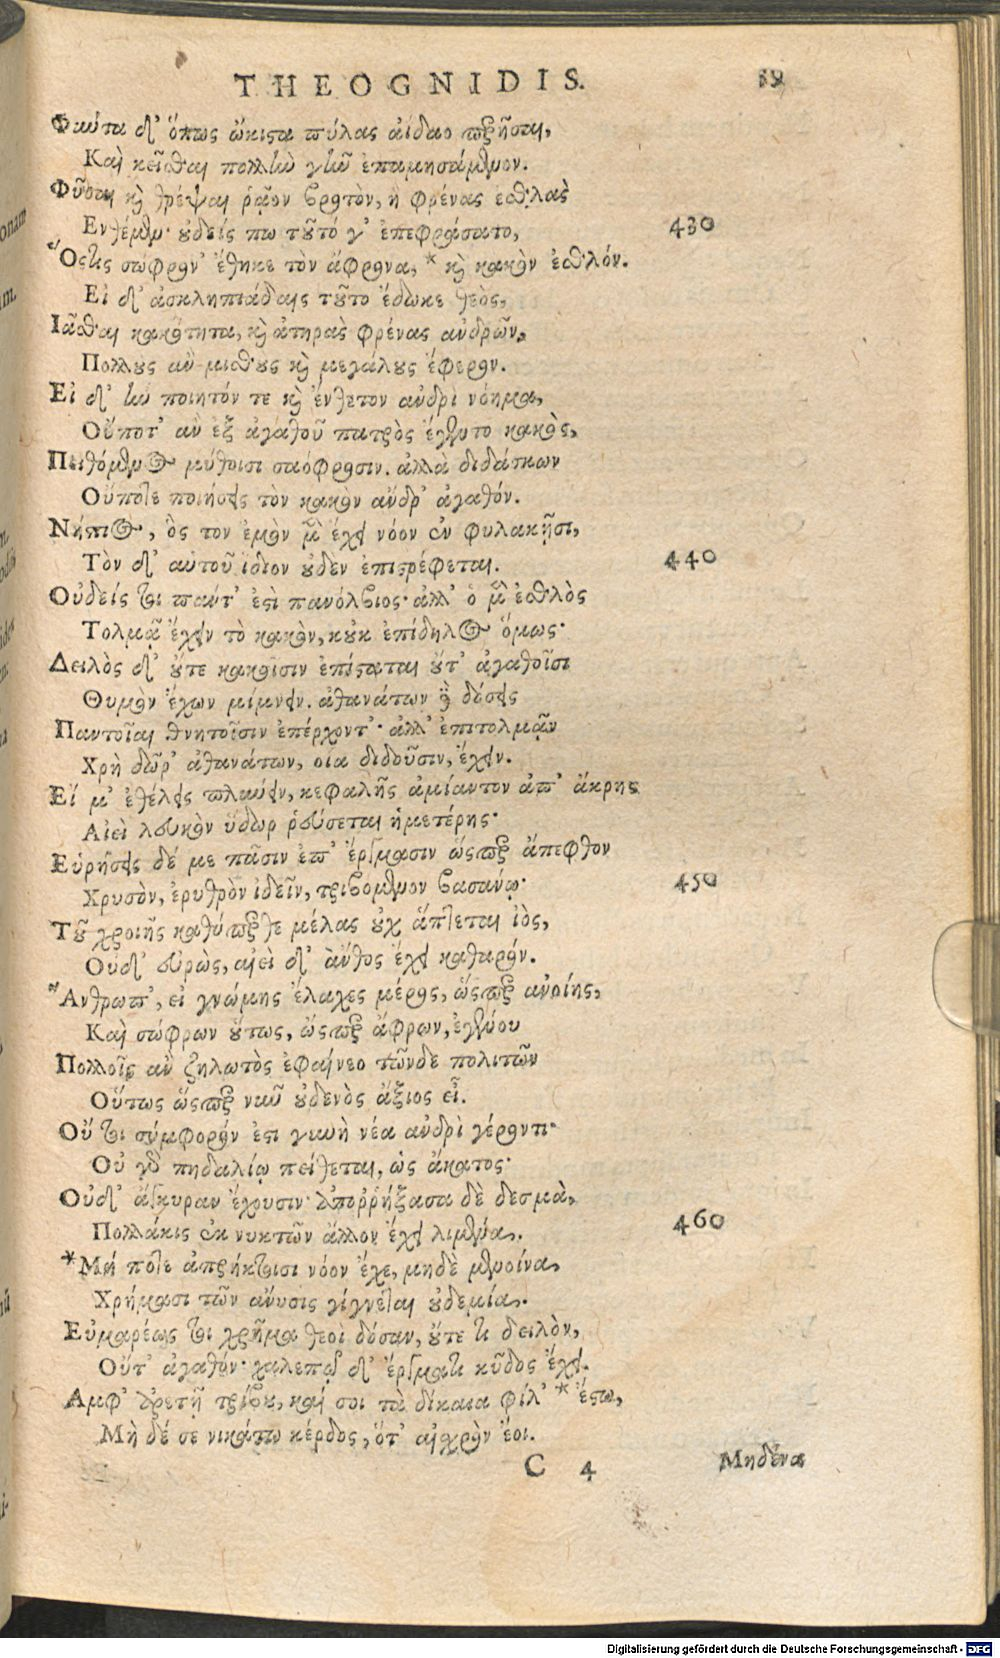 THEOGNIDIS. 39
Φῶτα δ' ὅπως ὤκιστα πύλας ἀίδαο περῆσαι,
Καὶ κεῖσθαι πολλὴν γῆν ἐπαμησάμενον.
Φῦσαι καὶ θρέψαι ῥᾷον βροτὸν, ἢ φρένας ἐσθλὰς
Ενθέμεν· οὐδείς πω τοῦτό γ' ἐπεφράσατο, 430
Ὅστις σώφρον' ἔθηκε τὸν ἄφρονα, * καὶ κακὸν ἐσθλόν.
Εἰ δ' ἀσκληπιάδαις τοῦτο ἔδωκε θεὸς,
Ιᾶσθαι κακότητα, καὶ ἀτηρὰς φρένας ἀνδρῶν,
Πολλοὺς ἂν μισθοὺς καὶ μεγάλους ἔφερον.
Εἰ δ' ἦν ποιητόν τε καὶ ἔνθετον ἀνδρὶ νόημα,
Οὔποτ' ἂν ἐξ ἀγαθοῦ πατρὸς ἔγεντο κακὸς,
Πειθόμενος μύθοισι σαόφροσιν. ἀλλὰ διδάσκων
Οὔποτε ποιήσεις τὸν κακὸν ἄνδρ' ἀγαθόν.
Νήπιος, ὃς τον ἐμὸν μὲν ἔχει νόον ἐν φυλακῇσι,
Τὸν δ' αὐτοῦ ἴδιον οὐδὲν ἐπιστρέφεται. 440
Οὐδείς τοι πάντ' ἐστὶ πανόλβιος· ἀλλ' ὁ μὲν ἐσθλὸς
Τολμᾷ ἔχειν τὸ κακὸν, κοὐκ ἐπίδηλος ὅμως·
Δειλὸς δ' οὔτε κακοῖσιν ἐπίσταται οὔτ' ἀγαθοῖσι
Θυμὸν ἔχων μίμνειν. ἀθανάτων γὰρ δόσεις
Παντοῖαι θνητοῖσιν ἐπέρχοντ'· ἀλλ' ἐπιτολμᾷν
Χρὴ δῶρ' ἀθανάτων, οια διδοῦσιν, ἔχειν.
Εἴ μ' ἐθέλεις πλύνειν, κεφαλῆς ἀμίαντον ἀπ' ἄκρης
Αἰεὶ λευκὸν ὕδωρ ῥεύσεται ἡμετέρης·
Εὑρήσεις δέ με πᾶσιν ἐπ' ἔργμασιν ὥσπερ ἄπεφθον
Χρυσὸν, ἐρυθρὸν ἰδεῖν, τριβόμενον βασάνῳ· 450
Τοῦ χροιῆς καθύπερθε μέλας οὐχ ἅπτεται ἰὸς,
Οὐδ' εὐρὼς, αἰεὶ δ' ἄνθος ἔχει καθαρόν.
Ἄνθρωπ', εἰ γνώμης ἔλαχες μέρος, ὥσπερ ἀνοίης,
Καὶ σώφρων οὕτως, ὥσπερ ἄφρων, ἐγένου
Πολλοῖς ἂν ζηλωτὸς ἐφαίνεο τῶνδε πολιτῶν
Οὕτως ὥσπερ νῦν οὐδενὸς ἄξιος εἶ.
Οὔ τοι σύμφορόν ἐστι γυνὴ νέα ἀνδρὶ γέροντι·
Οὐ γὰρ πηδαλίῳ πείθεται, ὡς ἄκατος·
Οὐδ' ἄγκυραν ἔχουσιν· ἀπορρήξασα δὲ δεσμὰ,
Πολλάκις ἐκ νυκτῶν ἄλλον ἔχει λιμένα. 460
*Μή ποτε ἀπρήκτοισι νόον ἔχε, μηδὲ μενοίνα,
Χρήμασι τῶν ἄνυσις γίγνεται οὐδεμία.
Εὐμαρέως τοι χρῆμα θεοὶ δόσαν, οὔτε τι δειλὸν,
Οὔτ' ἀγαθόν· χαλεπῷ δ' ἔργματι κῦδος ἔχει.
Αμφ' ἀρετῇ τρίβου, καί σοι τὰ δίκαια φίλ' * ἔστω,
Μὴ δέ σε νικάτω κέρδος, ὅτ' αἰσχρὸν ἔοι.
C 4 Μηδένα
Digitalisierung gefördert durch die Deutsche Forschungsgemeinschaft - DFG